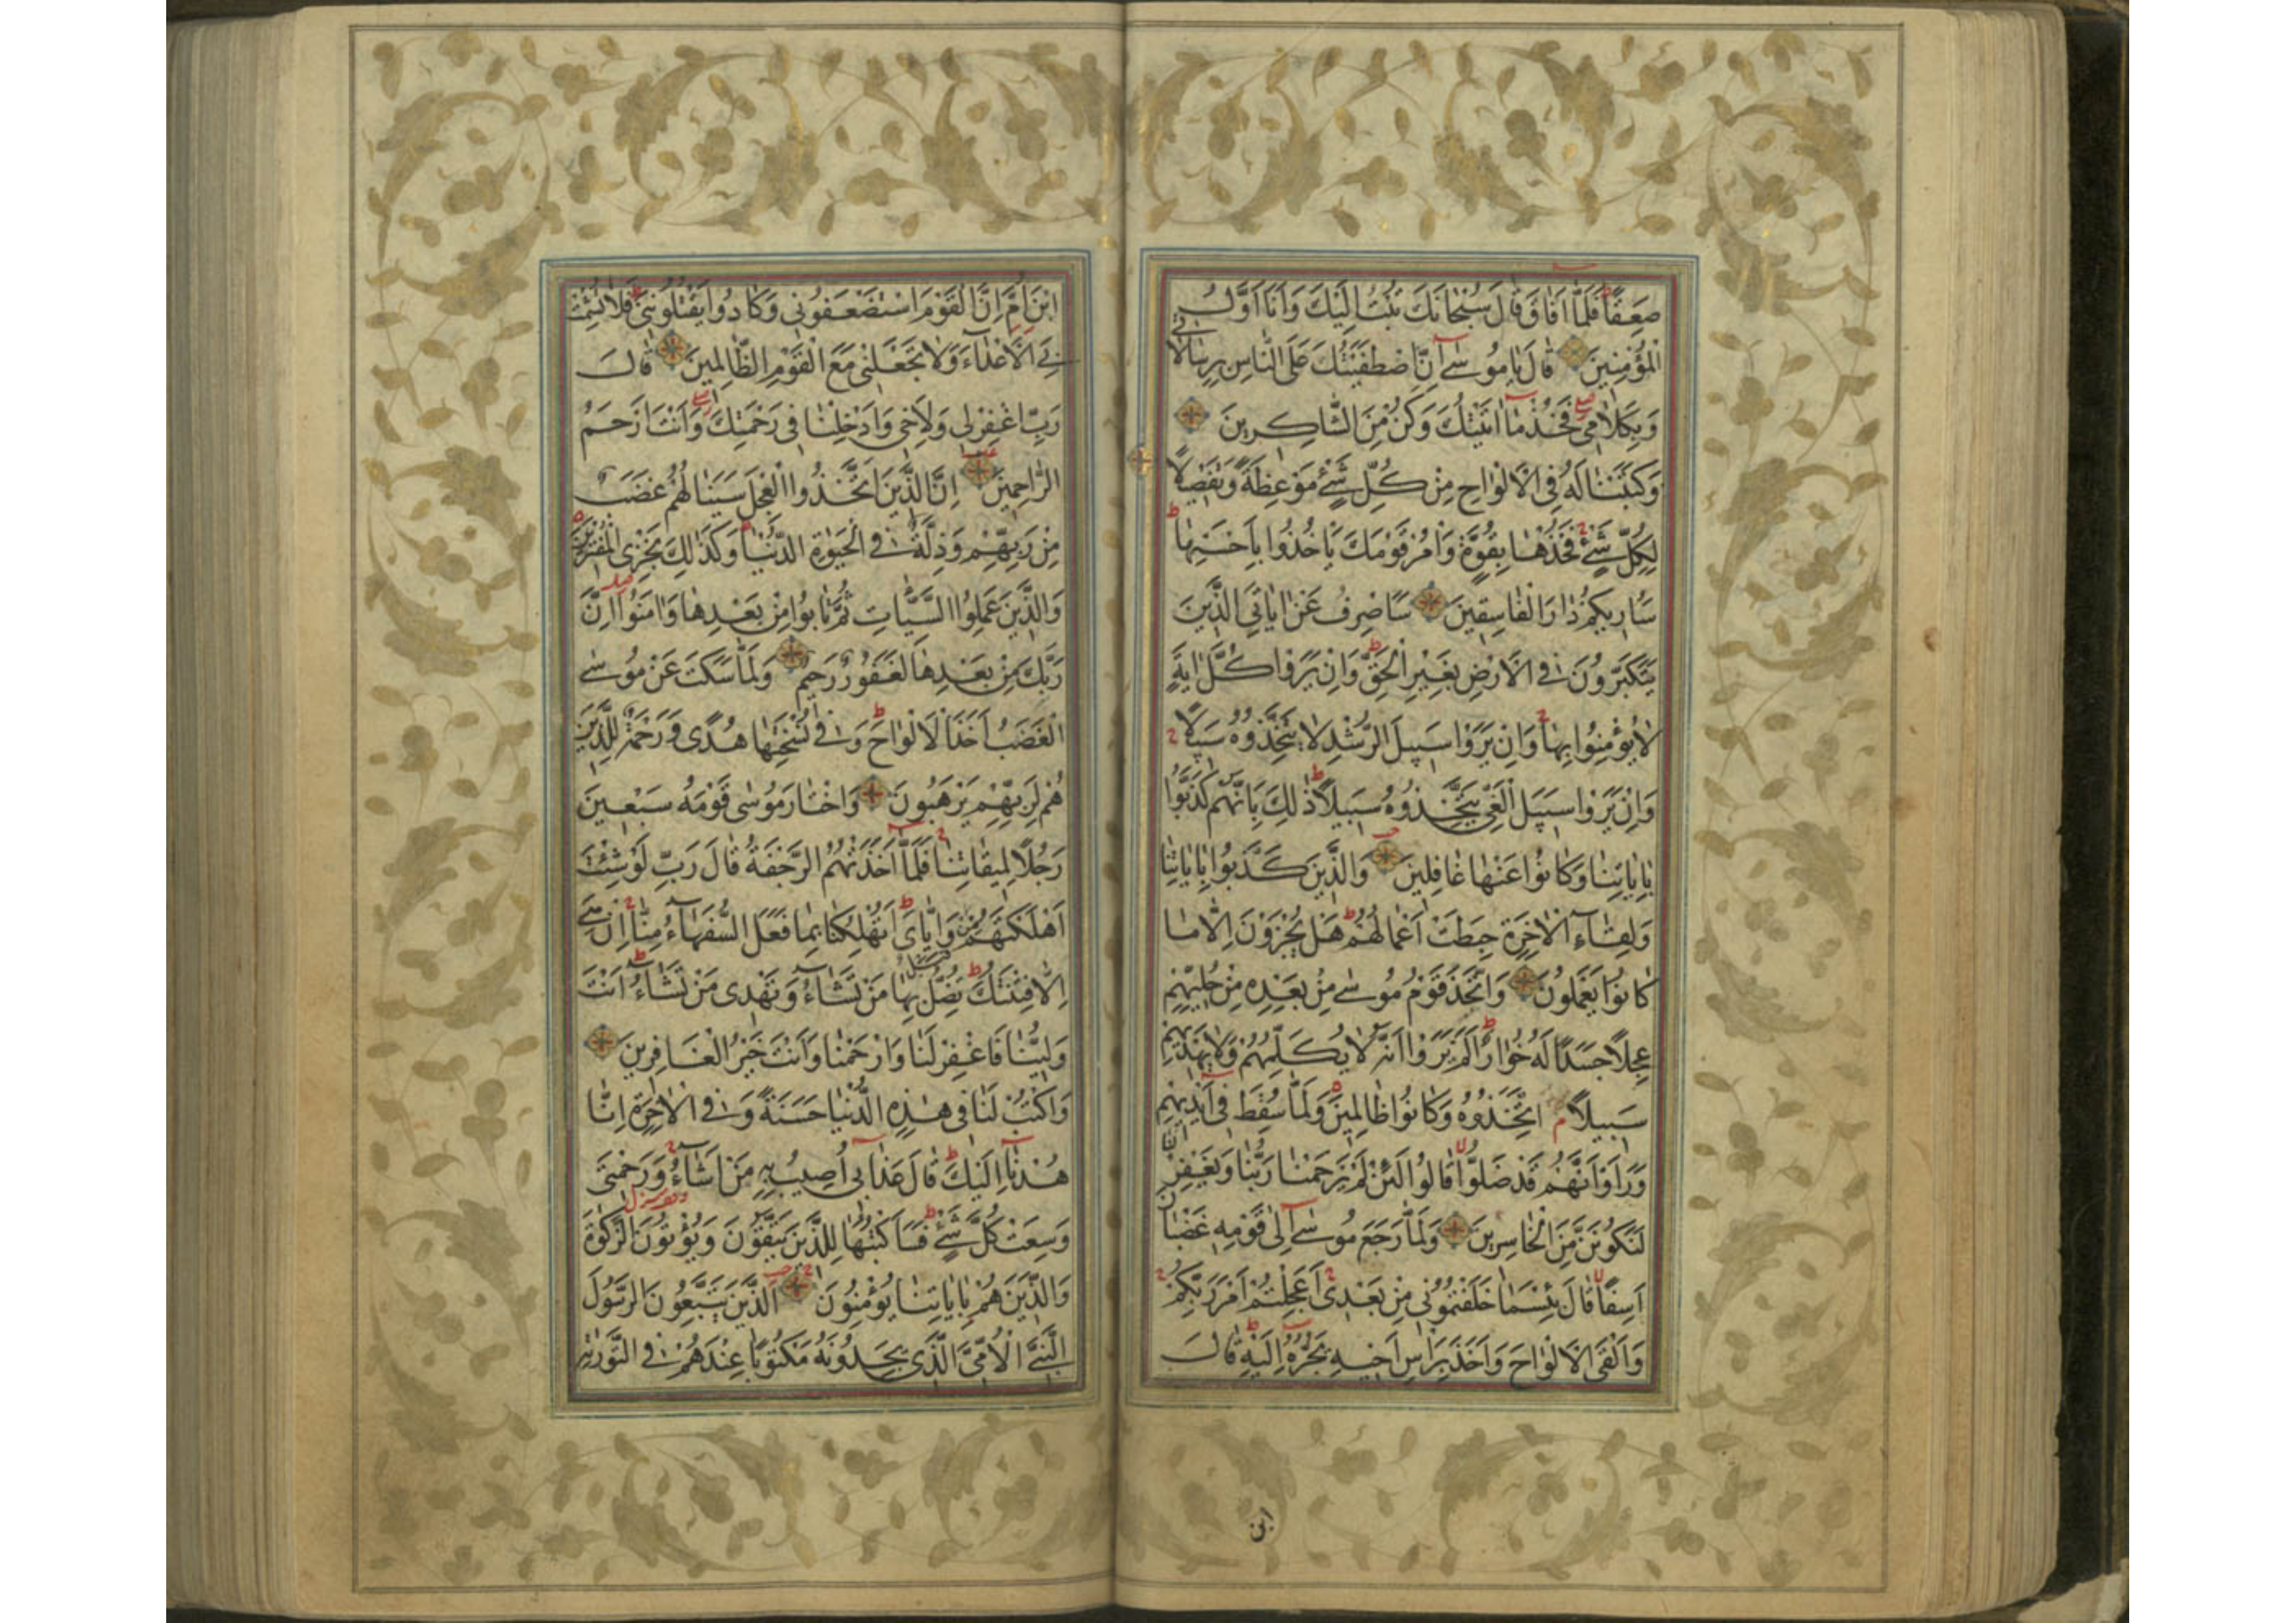 صَعِقًا فَلَمَّا اَفَاقَ قَالَ سُبْحَانَكَ تُبْتُ اِلَيْكَ وَاَنَا اَوَّلُ
الْمُؤْمِنِينَ قَالَ يَا مُوسٰى اِنِّى اصْطَفَيْتُكَ عَلَى النَّاسِ بِرِسَالَاتِى
وَبِكَلَامِى فَخُذْ مَا اٰتَيْتُكَ وَكُنْ مِنَ الشَّاكِرِينَ
وَكَتَبْنَا لَهُ فِى الْاَلْوَاحِ مِنْ كُلِّ شَىْءٍ مَوْعِظَةً وَتَفْصِيلًا
لِكُلِّ شَىْءٍ فَخُذْهَا بِقُوَّةٍ وَاْمُرْ قَوْمَكَ يَاْخُذُوا بِاَحْسَنِهَا
سَاُرِيكُمْ دَارَ الْفَاسِقِينَ سَاَصْرِفُ عَنْ اٰيَاتِىَ الَّذِينَ
يَتَكَبَّرُونَ فِى الْاَرْضِ بِغَيْرِ الْحَقِّ وَاِنْ يَرَوْا كُلَّ اٰيَةٍ
لَا يُؤْمِنُوا بِهَا وَاِنْ يَرَوْا سَبِيلَ الرُّشْدِ لَا يَتَّخِذُوهُ سَبِيلًا
وَاِنْ يَرَوْا سَبِيلَ الْغَىِّ يَتَّخِذُوهُ سَبِيلًا ذٰلِكَ بِاَنَّهُمْ كَذَّبُوا
بِاٰيَاتِنَا وَكَانُوا عَنْهَا غَافِلِينَ وَالَّذِينَ كَذَّبُوا بِاٰيَاتِنَا
وَلِقَاءِ الْاٰخِرَةِ حَبِطَتْ اَعْمَالُهُمْ هَلْ يُجْزَوْنَ اِلَّا مَا
كَانُوا يَعْمَلُونَ وَاتَّخَذَ قَوْمُ مُوسٰى مِنْ بَعْدِهِ مِنْ حُلِيِّهِمْ
عِجْلًا جَسَدًا لَهُ خُوَارٌ اَلَمْ يَرَوْا اَنَّهُ لَا يُكَلِّمُهُمْ وَلَا يَهْدِيهِمْ
سَبِيلًا اتَّخَذُوهُ وَكَانُوا ظَالِمِينَ وَلَمَّا سُقِطَ فِى اَيْدِيهِمْ
وَرَاَوْا اَنَّهُمْ قَدْ ضَلُّوا قَالُوا لَئِنْ لَمْ يَرْحَمْنَا رَبُّنَا وَيَغْفِرْ لَنَا
لَنَكُونَنَّ مِنَ الْخَاسِرِينَ وَلَمَّا رَجَعَ مُوسٰى اِلٰى قَوْمِهِ غَضْبَانَ
اَسِفًا قَالَ بِئْسَمَا خَلَفْتُمُونِى مِنْ بَعْدِى اَعَجِلْتُمْ اَمْرَ رَبِّكُمْ
وَاَلْقَى الْاَلْوَاحَ وَاَخَذَ بِرَاْسِ اَخِيهِ يَجُرُّهُ اِلَيْهِ قَالَ
ابن
ابْنَ اُمَّ اِنَّ الْقَوْمَ اسْتَضْعَفُونِى وَكَادُوا يَقْتُلُونَنِى فَلَا تُشْمِتْ
بِىَ الْاَعْدَاءَ وَلَا تَجْعَلْنِى مَعَ الْقَوْمِ الظَّالِمِينَ قَالَ
رَبِّ اغْفِرْ لِى وَلِاَخِى وَاَدْخِلْنَا فِى رَحْمَتِكَ وَاَنْتَ اَرْحَمُ
الرَّاحِمِينَ اِنَّ الَّذِينَ اتَّخَذُوا الْعِجْلَ سَيَنَالُهُمْ غَضَبٌ
مِنْ رَبِّهِمْ وَذِلَّةٌ فِى الْحَيٰوةِ الدُّنْيَا وَكَذٰلِكَ نَجْزِى الْمُفْتَرِينَ
وَالَّذِينَ عَمِلُوا السَّيِّاٰتِ ثُمَّ تَابُوا مِنْ بَعْدِهَا وَاٰمَنُوا اِنَّ
رَبَّكَ مِنْ بَعْدِهَا لَغَفُورٌ رَحِيمٌ وَلَمَّا سَكَتَ عَنْ مُوسَى
الْغَضَبُ اَخَذَ الْاَلْوَاحَ وَفِى نُسْخَتِهَا هُدًى وَرَحْمَةٌ لِلَّذِينَ
هُمْ لِرَبِّهِمْ يَرْهَبُونَ وَاخْتَارَ مُوسٰى قَوْمَهُ سَبْعِينَ
رَجُلًا لِمِيقَاتِنَا فَلَمَّا اَخَذَتْهُمُ الرَّجْفَةُ قَالَ رَبِّ لَوْ شِئْتَ
اَهْلَكْتَهُمْ مِنْ قَبْلُ وَاِيَّاىَ اَتُهْلِكُنَا بِمَا فَعَلَ السُّفَهَاءُ مِنَّا اِنْ هِىَ
اِلَّا فِتْنَتُكَ تُضِلُّ بِهَا مَنْ تَشَاءُ وَتَهْدِى مَنْ تَشَاءُ اَنْتَ
وَلِيُّنَا فَاغْفِرْ لَنَا وَارْحَمْنَا وَاَنْتَ خَيْرُ الْغَافِرِينَ
وَاكْتُبْ لَنَا فِى هٰذِهِ الدُّنْيَا حَسَنَةً وَفِى الْاٰخِرَةِ اِنَّا
هُدْنَا اِلَيْكَ قَالَ عَذَابِى اُصِيبُ بِهِ مَنْ اَشَاءُ وَرَحْمَتِى
وَسِعَتْ كُلَّ شَىْءٍ فَسَاَكْتُبُهَا لِلَّذِينَ يَتَّقُونَ وَيُؤْتُونَ الزَّكٰوةَ
وَالَّذِينَ هُمْ بِاٰيَاتِنَا يُؤْمِنُونَ اَلَّذِينَ يَتَّبِعُونَ الرَّسُولَ
النَّبِىَّ الْاُمِّىَّ الَّذِى يَجِدُونَهُ مَكْتُوبًا عِنْدَهُمْ فِى التَّوْرٰيةِ